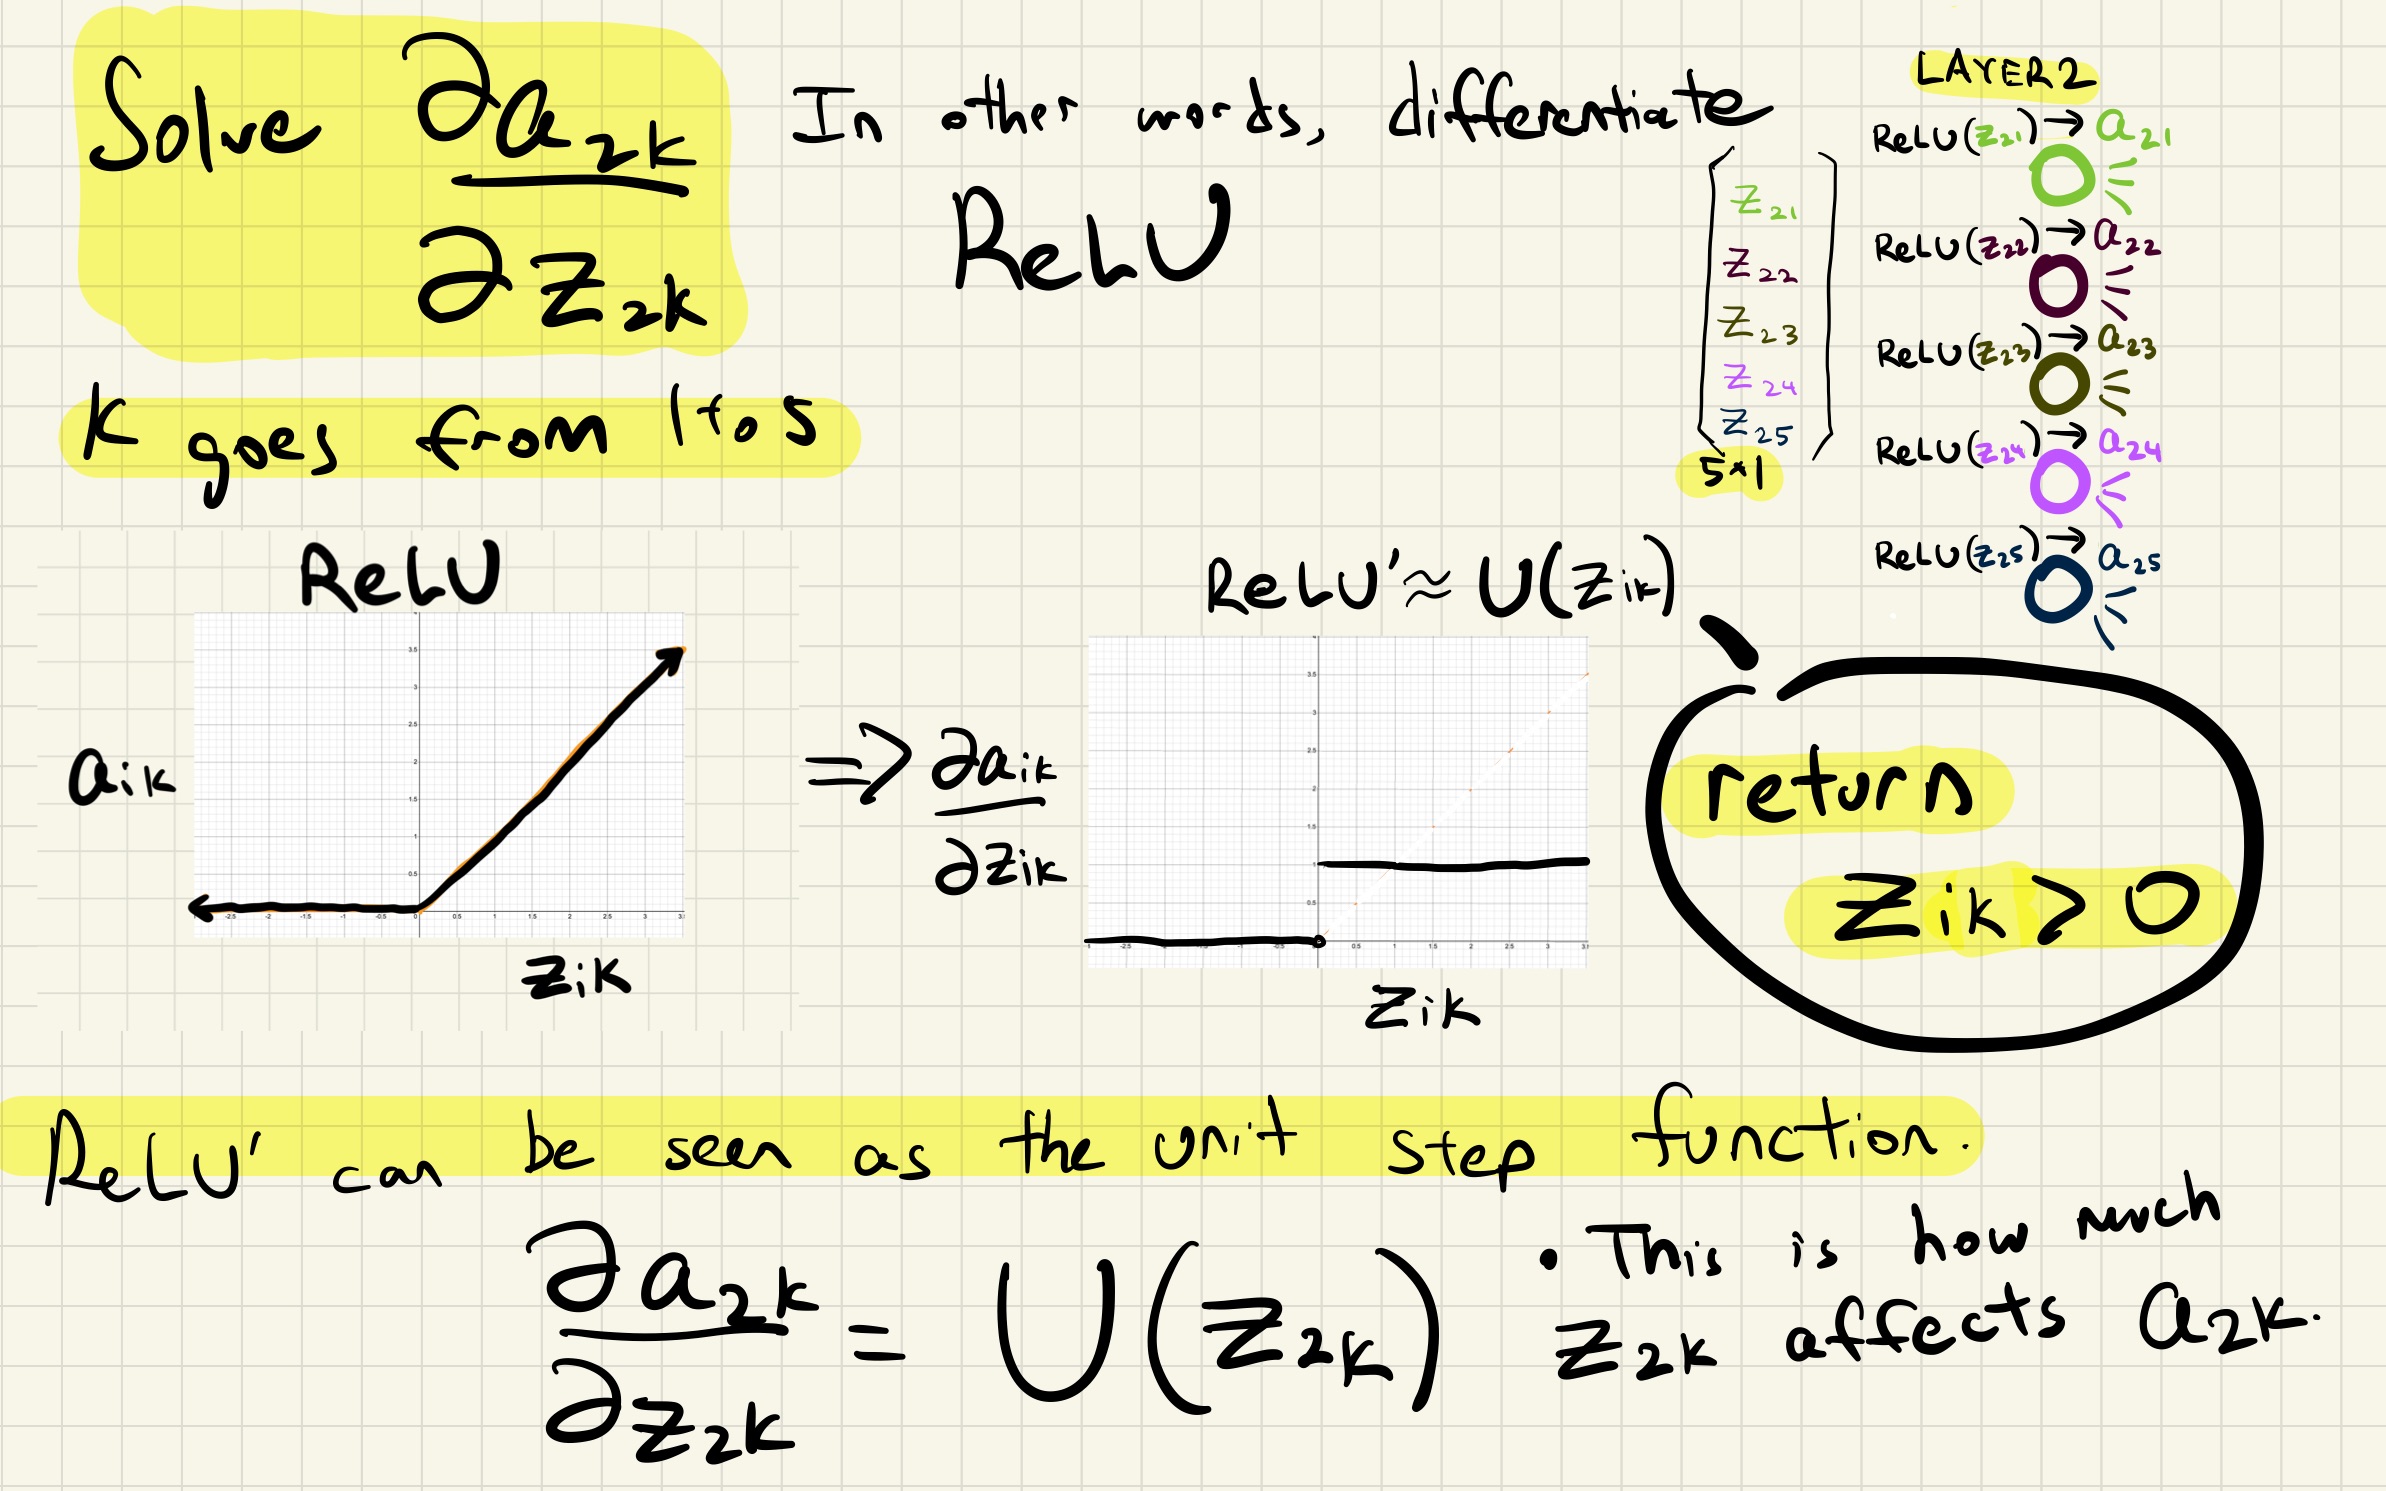 Solve ∂a₂ₖ / ∂z₂ₖ
In other words, differentiate
ReLU
K goes from 1 to 5
z₂₁
z₂₂
z₂₃
z₂₄
z₂₅
5*1
LAYER 2
ReLU(z₂₁) → a₂₁
ReLU(z₂₂) → a₂₂
ReLU(z₂₃) → a₂₃
ReLU(z₂₄) → a₂₄
ReLU(z₂₅) → a₂₅
ReLU
aᵢₖ
3.5
3
2.5
2
1.5
1
0.5
-2.5 -2 -1.5 -1 -0.5 0 0.5 1 1.5 2 2.5 3
zᵢₖ
⇒ ∂aᵢₖ / ∂zᵢₖ
ReLU' ≈ U(zᵢₖ)
3.5
3
2.5
2
1.5
1
0.5
-2.5 -0.5 0.5 1 1.5 2 2.5 3
zᵢₖ
return
zᵢₖ > 0
ReLU' can be seen as the unit step function.
∂a₂ₖ / ∂z₂ₖ = U(z₂ₖ)
• This is how much
z₂ₖ affects a₂ₖ.